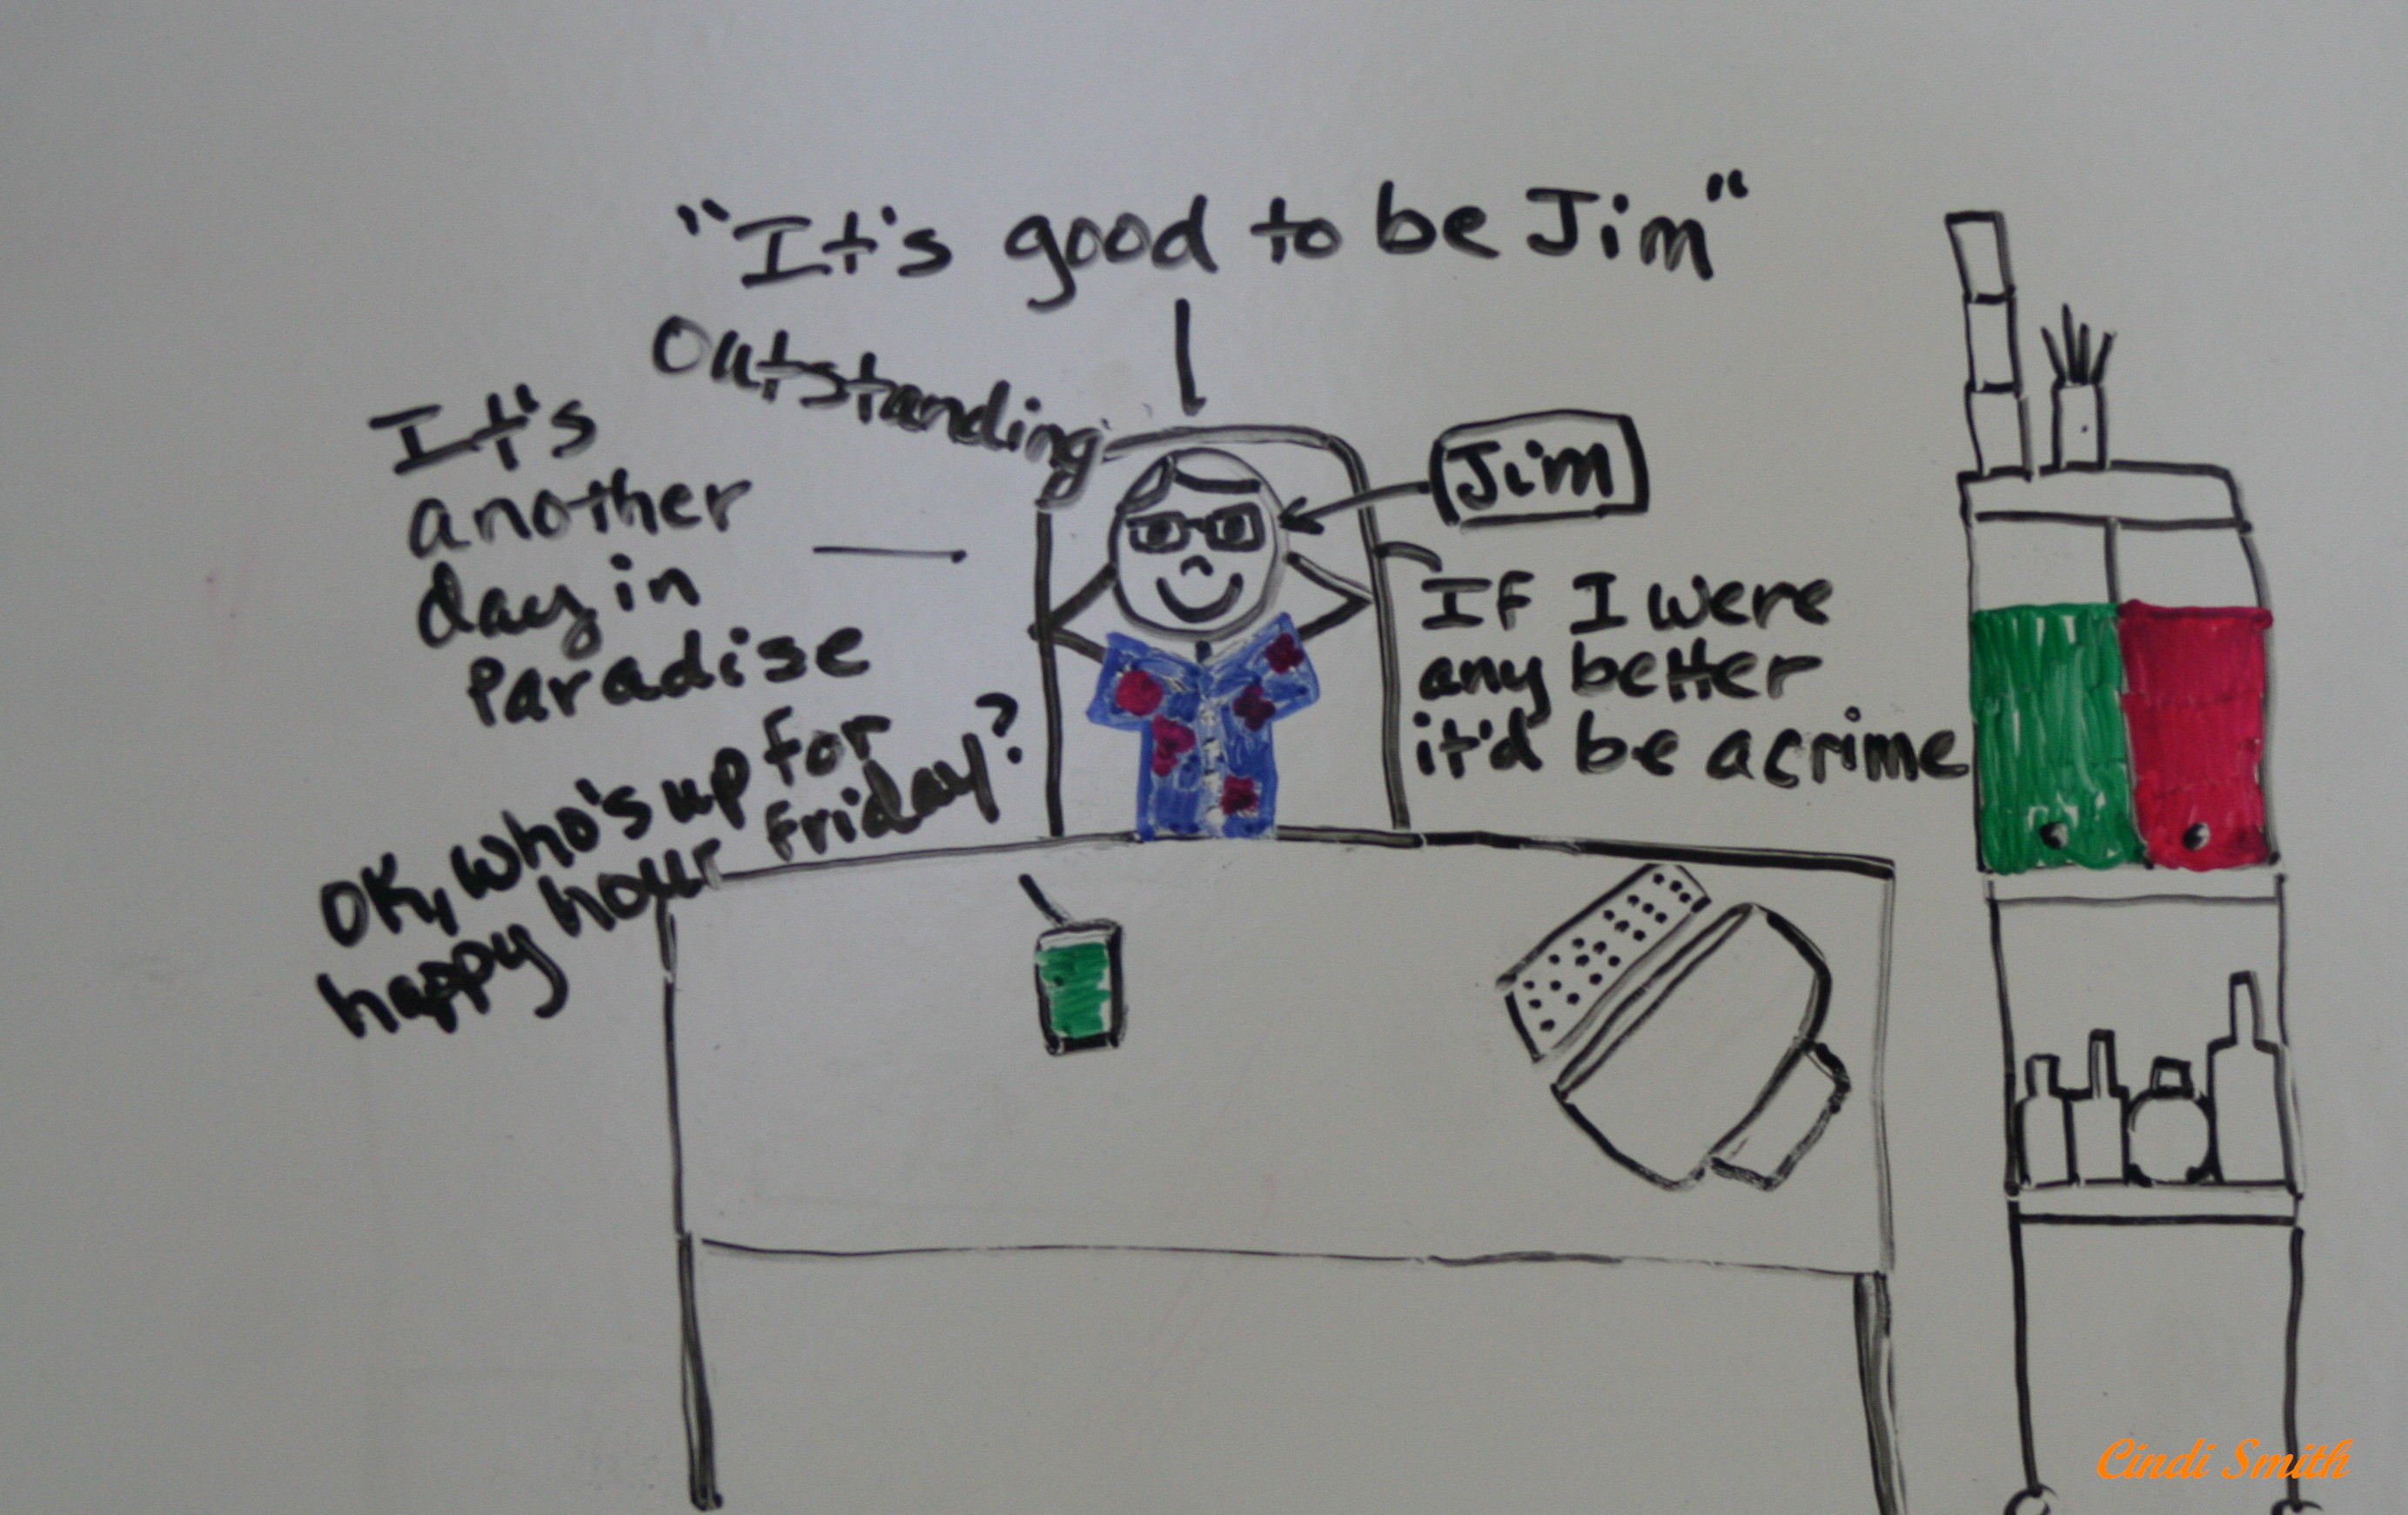 "It's good to be Jim"
Outstanding
It's
another
day in
Paradise
Jim
If I were
any better
it'd be a crime
OK, who's up for
happy hour Friday?
Cindi Smith